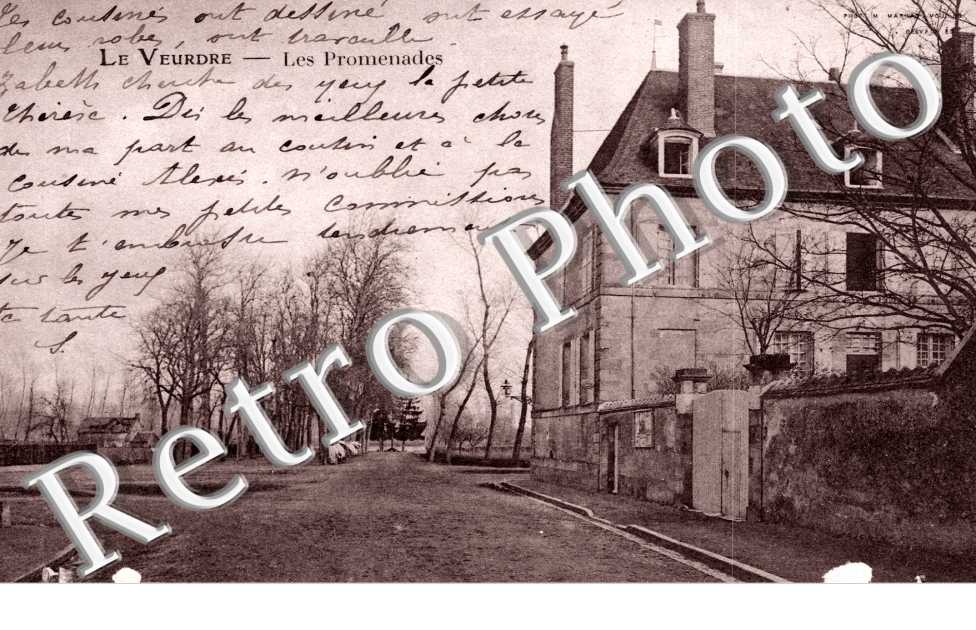 les cousines ont dessiné ont essayé
leurs robes, ont travaillé.
LE VEURDRE — Les Promenades
cherche des yeux la petite
Thérèse. Dis les meilleures choses
de ma part au cousin et à la
cousine Alexis. n'oublie pas
toutes mes petites commissions
Je t'embrasse tendrement
sur les yeux
ta tante
S.
PHOT. M.
Retro Photo